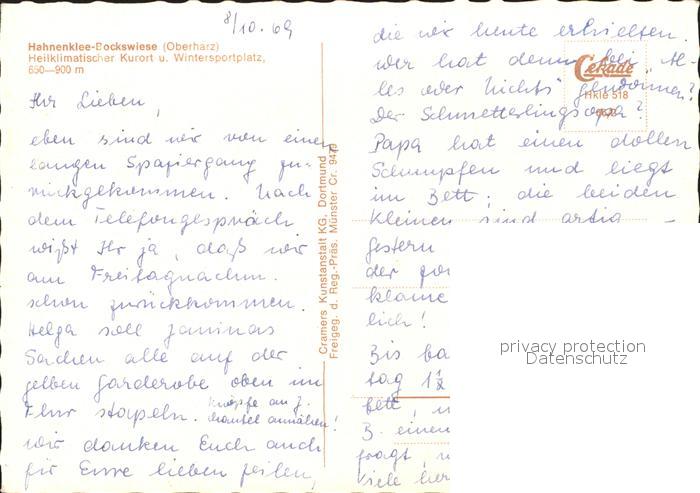 8/10.69
Hahnenklee-Bockswiese (Oberharz)
Heilklimatischer Kurort u. Wintersportplatz,
650—900 m
Ihr Lieben,
eben sind wir von einem
langen Spaziergang zu-
rückgekommen. Nach
dem Telefongespräch
wißt Ihr ja, daß wir
am Freitagnachm.
schon zurückkommen.
Helga soll Janinas
Sachen alle auf der
gelben Garderobe oben im
Flur stapeln. Knöpfe an J.
Mantel annähen!
Wir danken Euch auch
für Eure lieben Zeilen,
Cramers Kunstanstalt KG, Dortmund
Freigeg. d. Reg.-Präs. Münster Cr. 9479
Cekade
Hkle 518
die wir heute erhielten.
Wer hat denn bei "Al-
les oder Nichts" gewonnen?
Der Schmetterlingsopa?
Papa hat einen dollen
Schnupfen und liegt
im Bett; die beiden
Kleinen sind artig —
gestern
der
lich!
Bis ba
tag 1½
Bett, u
Z. einen
fragt, u
Viele her
privacy protection
Datenschutz